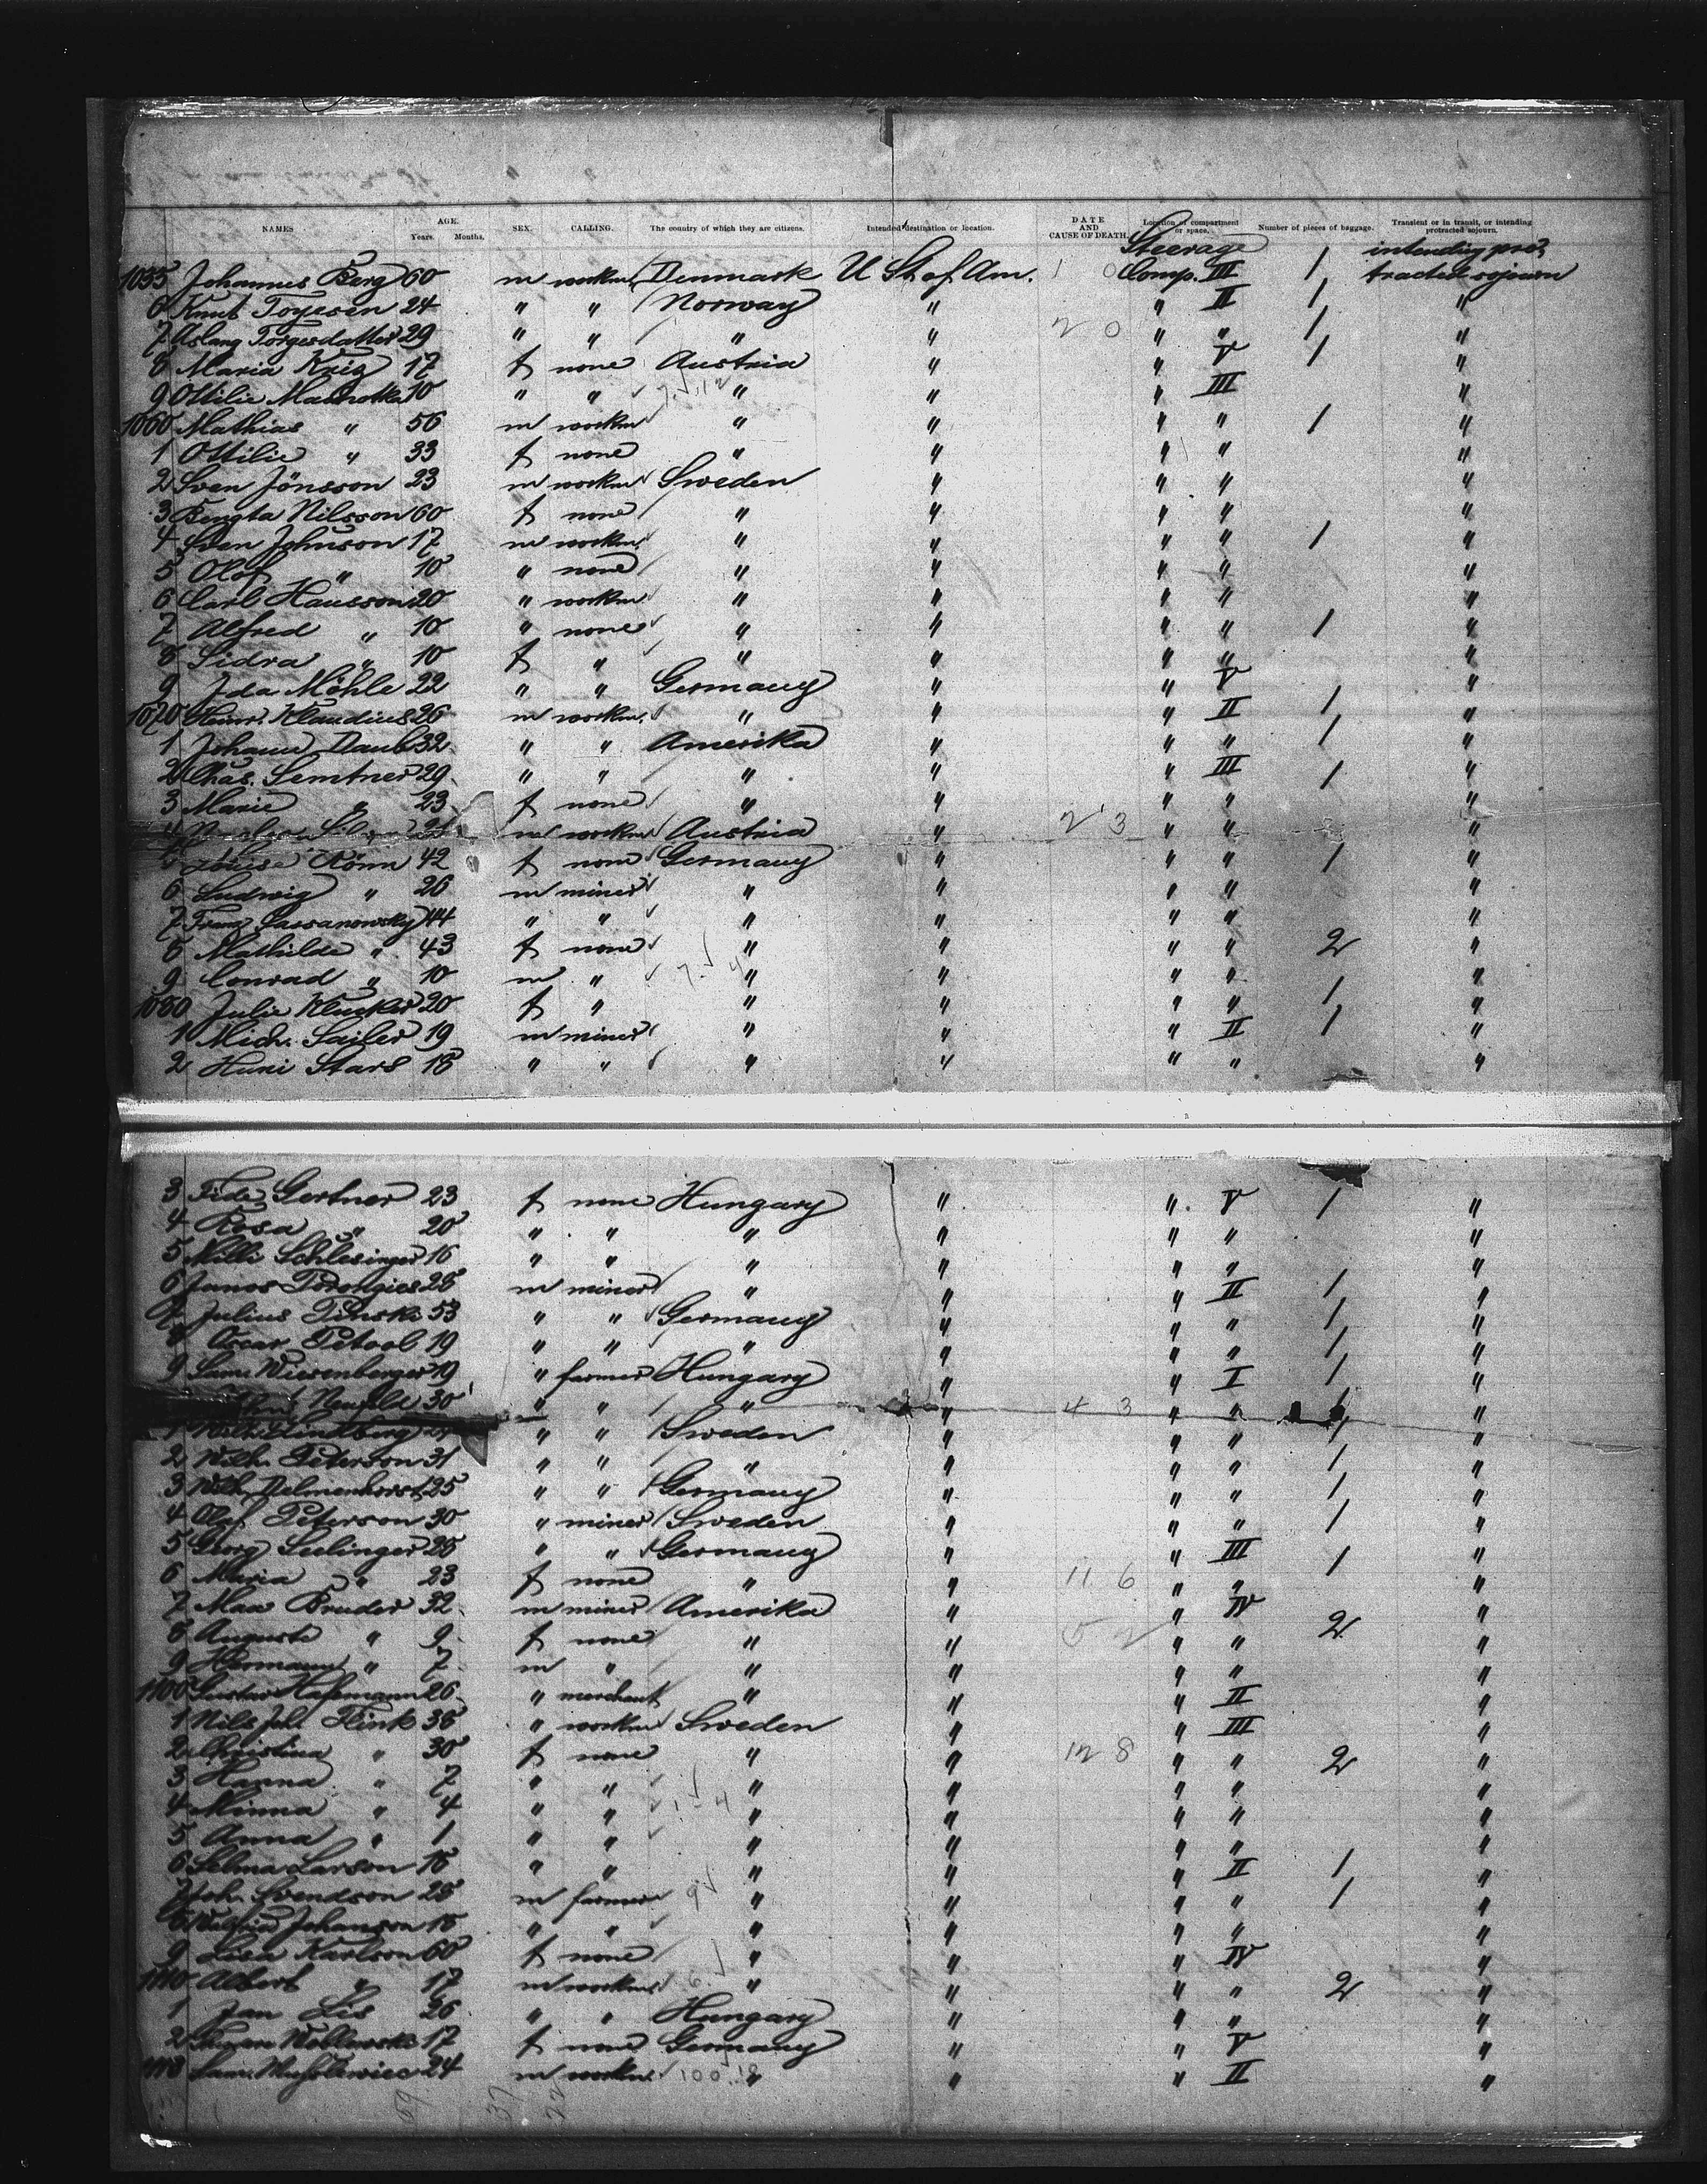 NAMES AGE. Years. Months. SEX. CALLING. The country of which they are citizens. Intended destination or location. DATE AND CAUSE OF DEATH. Location of compartment or space. Number of pieces of baggage. Transient or in transit, or intending protracted sojourn.
Steerage intending pro-
1055 Johannes Berg 60 m workm. Denmark U St of Am. 1 0 Comp. III 1 tracted sojourn
6 Knut 24 " " Norway " " II 1 "
7 Aslang Torgersdatter 29 " " " " 2 0 " " 1 "
8 Maria Krig 17 f none Austria " " V 1 "
9 Ottilie 10 " " " " " III "
1060 Mathias " 56 m workm " " " " 1 "
1 Ottilie " 33 f none " " " " "
2 Sven Jönsson 23 m workm Sweden " " " "
3 Bengta Nilsson 60 f none " " " " "
4 Sven Johnson 17 m workm. " " " " 1 "
5 Olof " 10 " none " " " " "
6 Carl Hansson 20 " workm " " " " "
7 Alfred " 10 " none " " " " 1 "
8 Sidra " 10 f " " " " " "
9 Ida Möhle 22 " " Germany " " V "
1070 Heinr. Klaudius 26 m workm. " " " II 1 "
1 Johann Daub 32 " " Amerika " " " 1 "
2 Chas. Semtner 29 " " " " " III 1 "
3 Marie " 23 f none " " " " "
4 m workm Austria " 2 3 " " "
5 Louise Rönn 42 f none Germany " " " 1 "
6 Ludwig " 26 m miner " " " " "
7 Franz Sassanowsky 44 " " " " " " "
8 Mathilde " 43 f none " " " " 2 "
9 Conrad " 10 m " " " " " "
1080 Julie Klucker 20 f " " " " " 1 "
1 Mich. Sailer 19 m miner " " " II 1 "
2 Huni Stars 18 " " " " " " "
3 Gertner 23 f none Hungary " " V 1 "
4 Rosa " 20 " " " " " " "
5 Milli Schlesinger 16 " " " " " " "
6 Janos 28 m miner " " " II 1 "
7 Julius 53 " " Germany " " " 1 "
8 Oscar 19 " " " " " " 1 "
9 Sam. Wiesenberger 19 " farmer Hungary " " I 1 "
30 " " " " 4 3 " " 1 "
1 Wilh. Lindberg " " Sweden " " " 1 "
2 Wilh. Peterson 31 " " " " " " 1 "
3 Wilh. Delmenhorst 25 " " Germany " " " 1 "
4 Olaf Peterson 30 " miner Sweden " " " 1 "
5 Georg Seelinger 28 " " Germany " " III 1 "
6 Maria " 23 f none " " 11 6 " " "
7 Max Bruder 32 m miner Amerika " " IV "
8 Auguste " 9 f none " " 5 2 " " 2 "
9 Hermann " 7 m " " " " " "
1100 Gustav Hafemann 26 " merchant " " " II "
1 Nils Joh. Flink 38 " workm Sweden " " III "
2 Christina " 30 f none " " 12 8 " " 2 "
3 Hanna " 7 " " " " " " "
4 Minna " 4 " " " " " " "
5 Anna " 1 " " " " " " "
6 Selma Larson 18 " " " " " II 1 "
7 Joh. Svendson 28 m farmer " " " " 1 "
8 Johanson 18 " " " " " " "
9 Lisa Karlson 60 f none " " " IV "
1110 Albert " 17 m workm " " " " 2 "
1 Jan Lis 26 " " Hungary " " " "
2 17 f none Germany " " V "
1113 Sam. 24 m workm. " " " II "